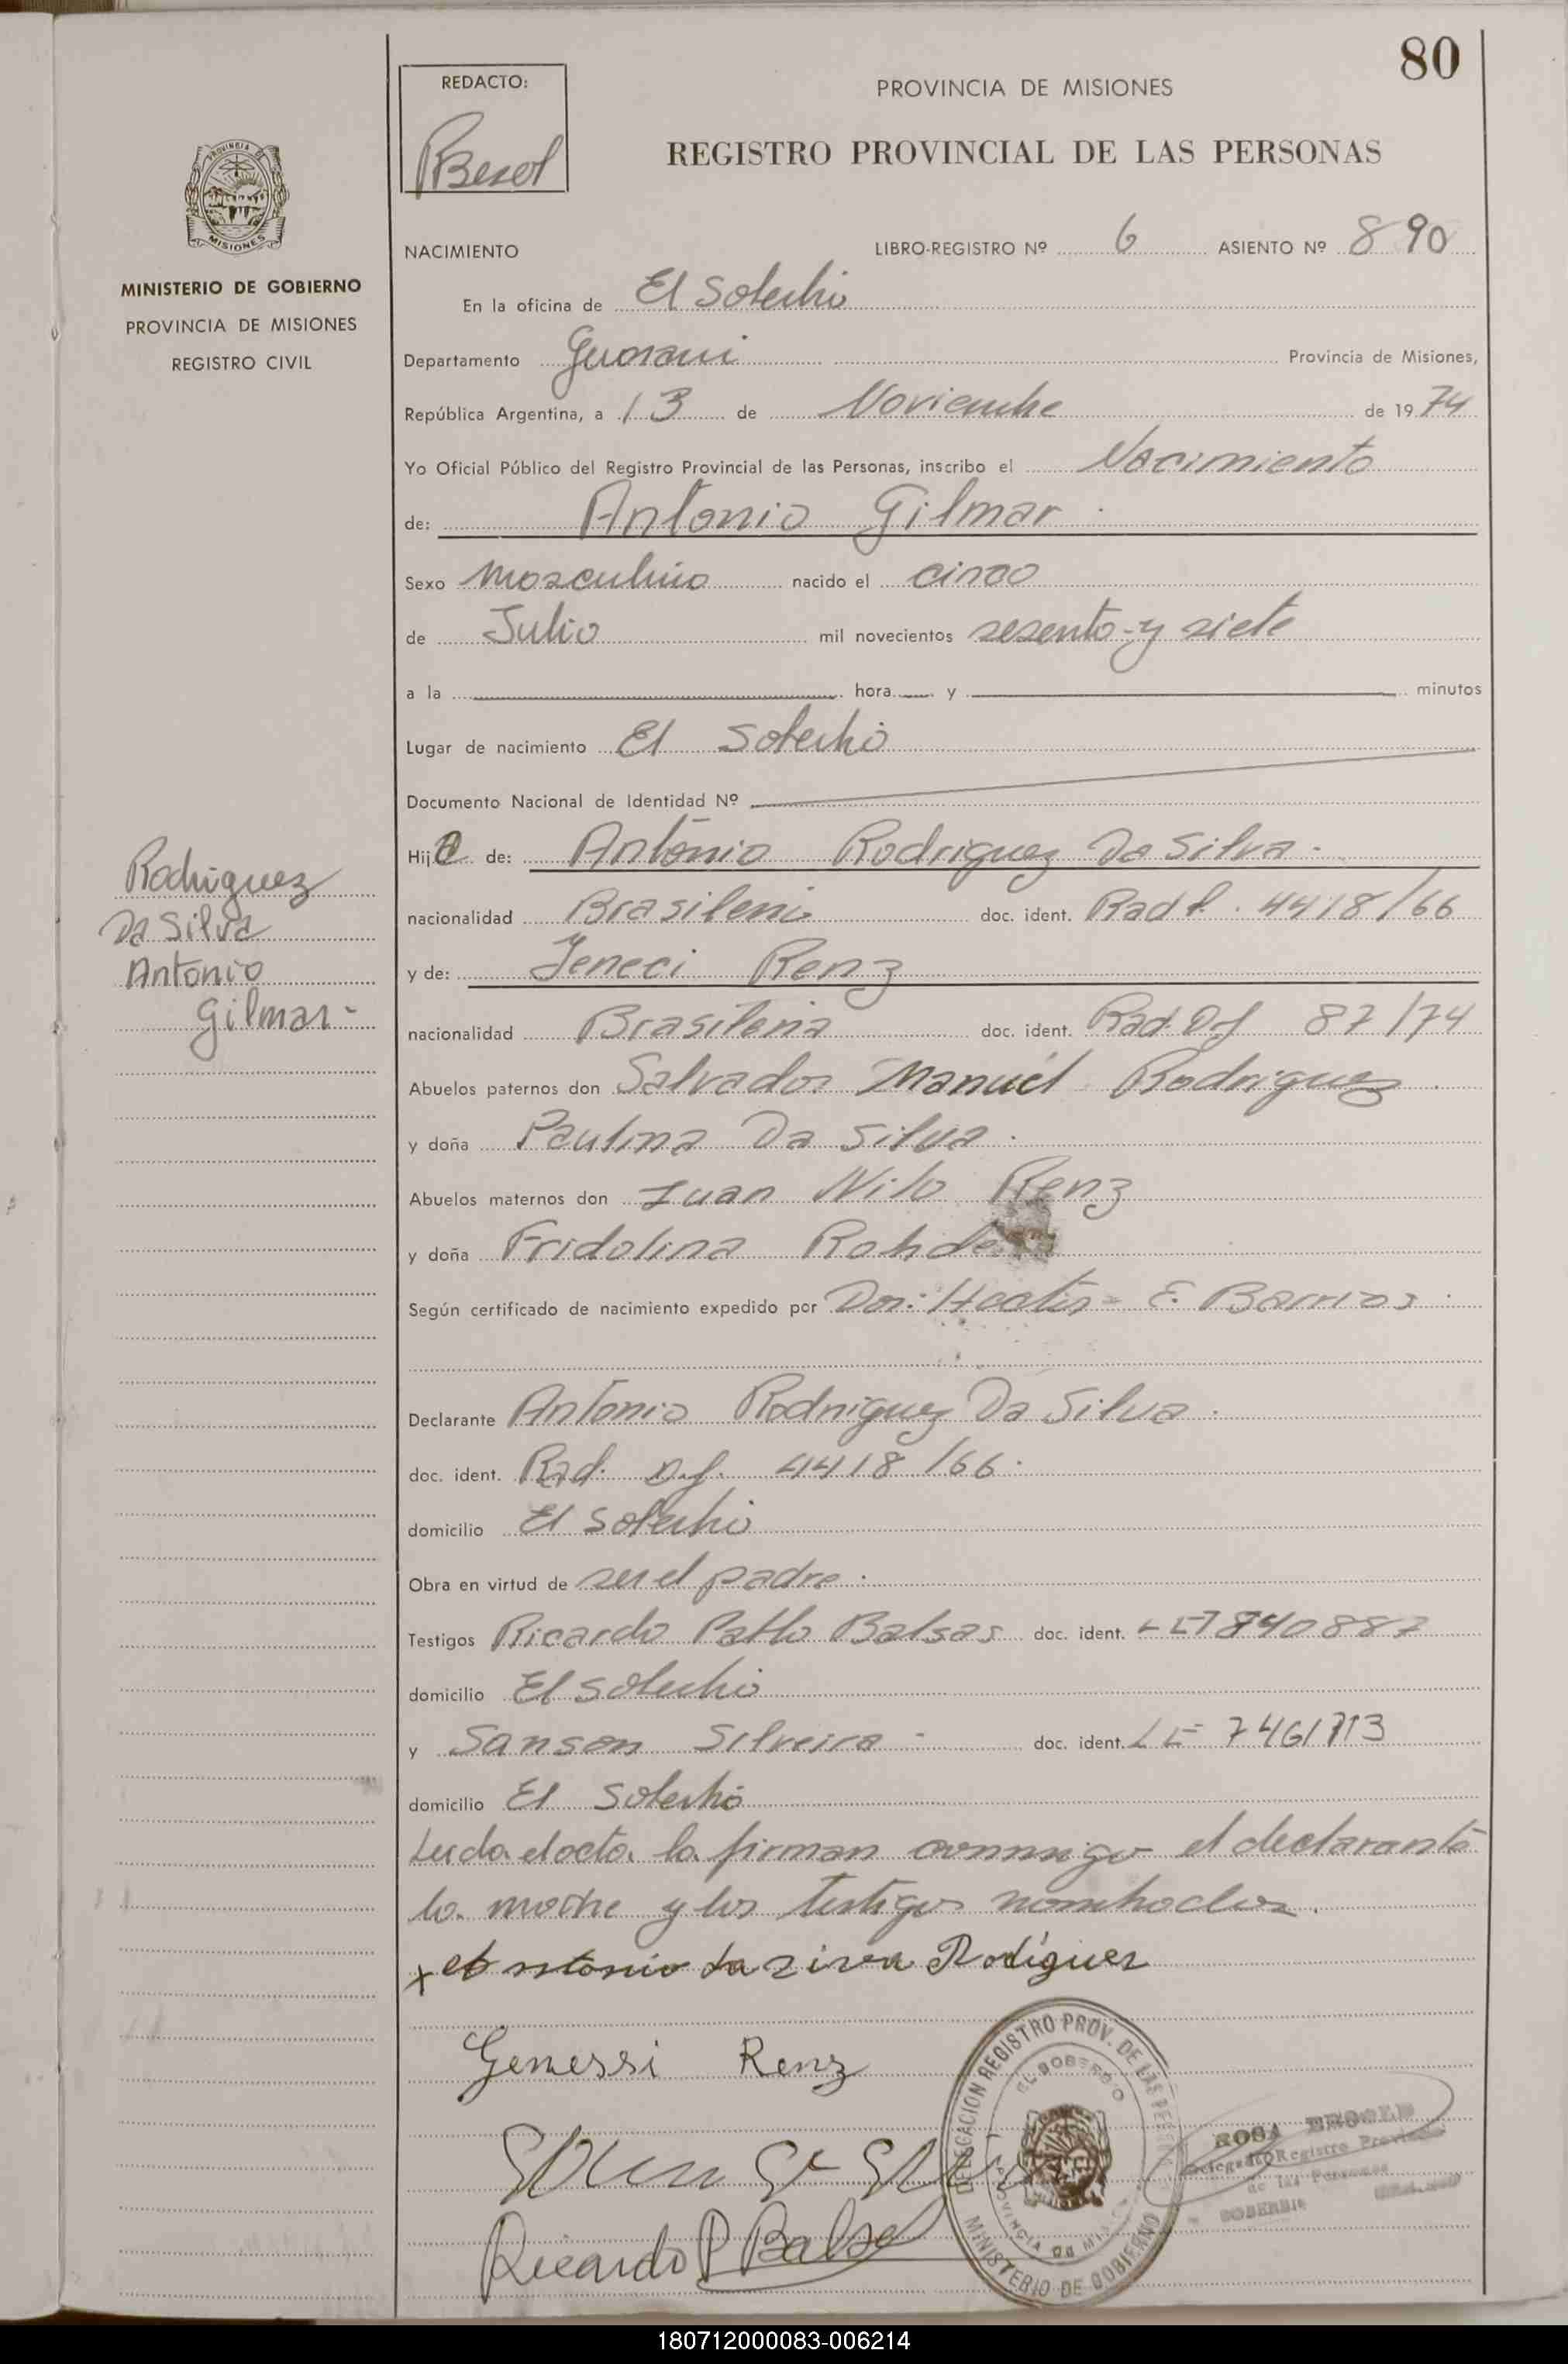 80
REDACTO:
PROVINCIA DE MISIONES
REGISTRO PROVINCIAL DE LAS PERSONAS
PROVINCIA DE
MISIONES
MINISTERIO DE GOBIERNO
PROVINCIA DE MISIONES
REGISTRO CIVIL
NACIMIENTO LIBRO-REGISTRO Nº 6 ASIENTO Nº 890
En la oficina de El Soberbio
Departamento Guarani Provincia de Misiones,
República Argentina, a 13 de Noviembre de 1974
Yo Oficial Público del Registro Provincial de las Personas, inscribo el Nacimiento
de: Antonio Gilmar
Sexo masculino nacido el cinco
de Julio mil novecientos sesenta y siete
a la hora y minutos
Lugar de nacimiento El Soberbio
Documento Nacional de Identidad Nº
Hijo de: Antonio Rodriguez Da Silva.
nacionalidad Brasileña doc. ident. Rad f. 4418/66
y de: Jeneci Renz
nacionalidad Brasileña doc. ident. Rad. Df 87/74
Abuelos paternos don Salvador Manuel Rodriguez
y doña Paulina Da Silva.
Abuelos maternos don Juan Nilo Renz
y doña Fridolina Rohde
Según certificado de nacimiento expedido por Dor: Hector E. Barrios.
Declarante Antonio Rodriguez Da Silva.
doc. ident. Rad. D.f. 4418/66.
domicilio El Soberbio
Obra en virtud de ser el padre.
Testigos Ricardo Pablo Balsas doc. ident. LE 7840887
domicilio El Soberbio
y Sanson Silveira doc. ident. LE 7461713
domicilio El Soberbio
Leida el acta la firman conmigo el declarante
la madre y los testigos nombrados.
x Antonio da Zirva Rodíguez
Genessi Renz
Ricardo P Balsa
Rodriguez
Da Silva
Antonio
Gilmar-
DELEGACION REGISTRO PROV. DE LAS PERS
EL SOBERBIO
PROVINCIA DE MIS
MINISTERIO DE GOBIERNO
ROSA
Delegado Registro Provincial
de las Personas
SOBERBIO
180712000083-006214